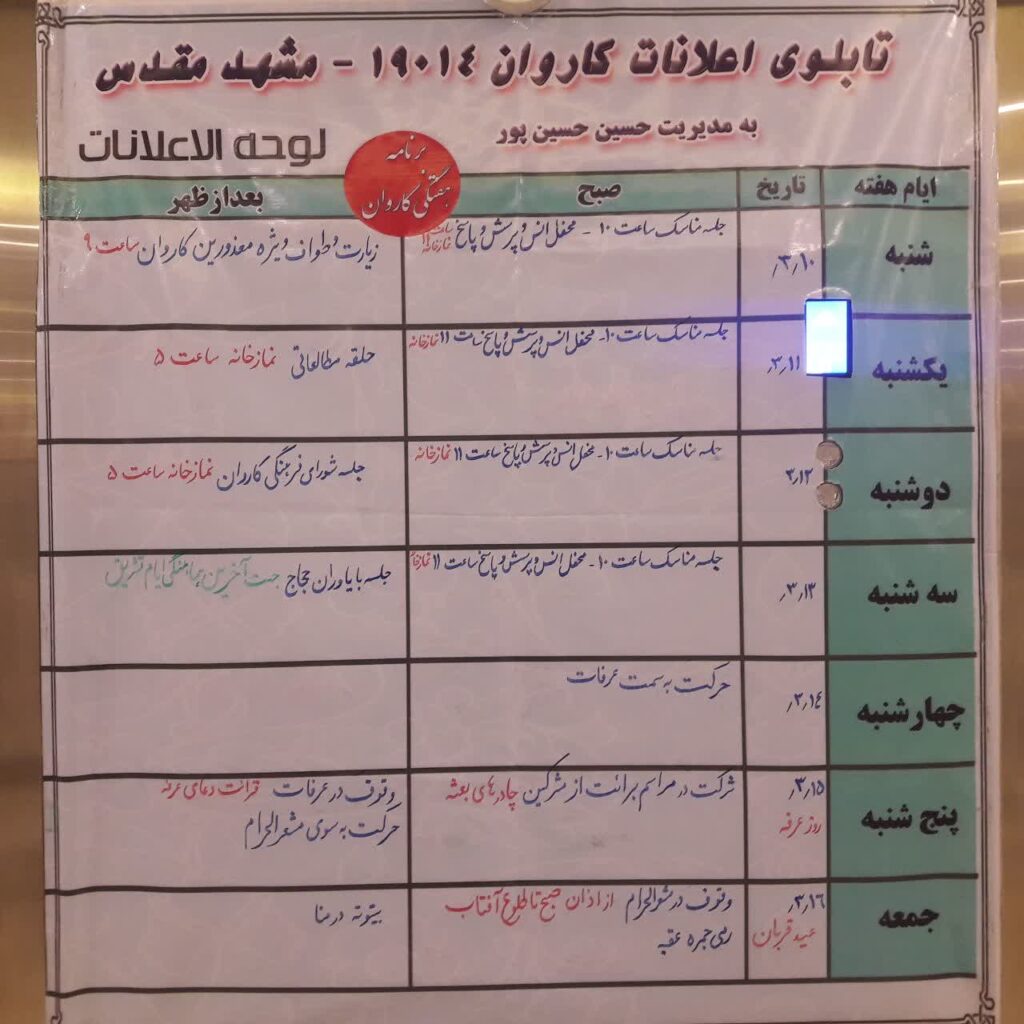 تابلوی اعلانات کاروان ۱۹۰۱۴ - مشهد مقدس
به مدیریت حسین حسین پور
لوحه الاعلانات
برنامه
هفتگی کاروان
ایام هفته تاریخ صبح بعدازظهر
شنبه ۳٫۱۰٫ جلسه مناسک ساعت ۱۰ - محفل انس و پرسش و پاسخ ساعت ۱۱ نمازخانه زیارت و طواف ویژه معذورین کاروان ساعت ۹
یکشنبه ۳٫۱۱٫ جلسه مناسک ساعت ۱۰ - محفل انس و پرسش و پاسخ ساعت ۱۱ نمازخانه حلقه مطالعاتی نمازخانه ساعت ۵
دوشنبه ۳٫۱۲ جلسه مناسک ساعت ۱۰ - محفل انس و پرسش و پاسخ ساعت ۱۱ نمازخانه جلسه شورای فرهنگی کاروان نمازخانه ساعت ۵
سه شنبه ۳٫۱۳٫ جلسه مناسک ساعت ۱۰ - محفل انس و پرسش و پاسخ ساعت ۱۱ نمازخانه جلسه با یاوران حجاج جهت آخرین هماهنگی ایام تشریق
چهارشنبه ۳٫۱٤٫ حرکت به سمت عرفات
پنج شنبه ۳٫۱۵٫ شرکت در مراسم برائت از مشرکین چادرهای بعثه وقوف در عرفات قرائت دعای عرفه
روز عرفه حرکت به سوی مشعرالحرام
جمعه ۳٫۱٦٫ وقوف در مشعرالحرام از اذان صبح تا طلوع آفتاب بیتوته در منا
عید قربان رمی جمره عقبه